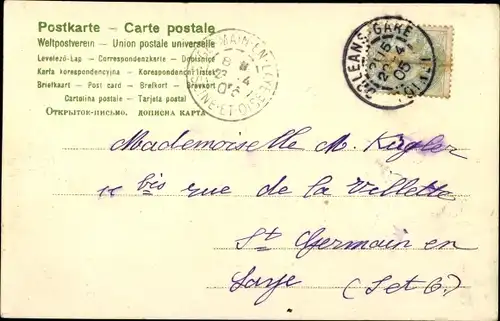 Postkarte – Carte postale
Weltpostverein – Union postale universelle
Levelező-Lap – Correspondenzkarte – Dopisnice
Karta korespondencyjna – Korespondenční lístek
Briefkaart – Post card – Brefkort – Brevkort
Cartolina postale – Tarjeta postal
Открытое-письмо. дописна карта
ORLEANS-GARE
15
22 4
05
LOIRET
ST GERMAIN-EN-LAYE
8
23 4
05
SEINE-ET-OISE
Mademoiselle M. Kügler
bis rue de la Villette
St Germain en
Laye (S et O.)